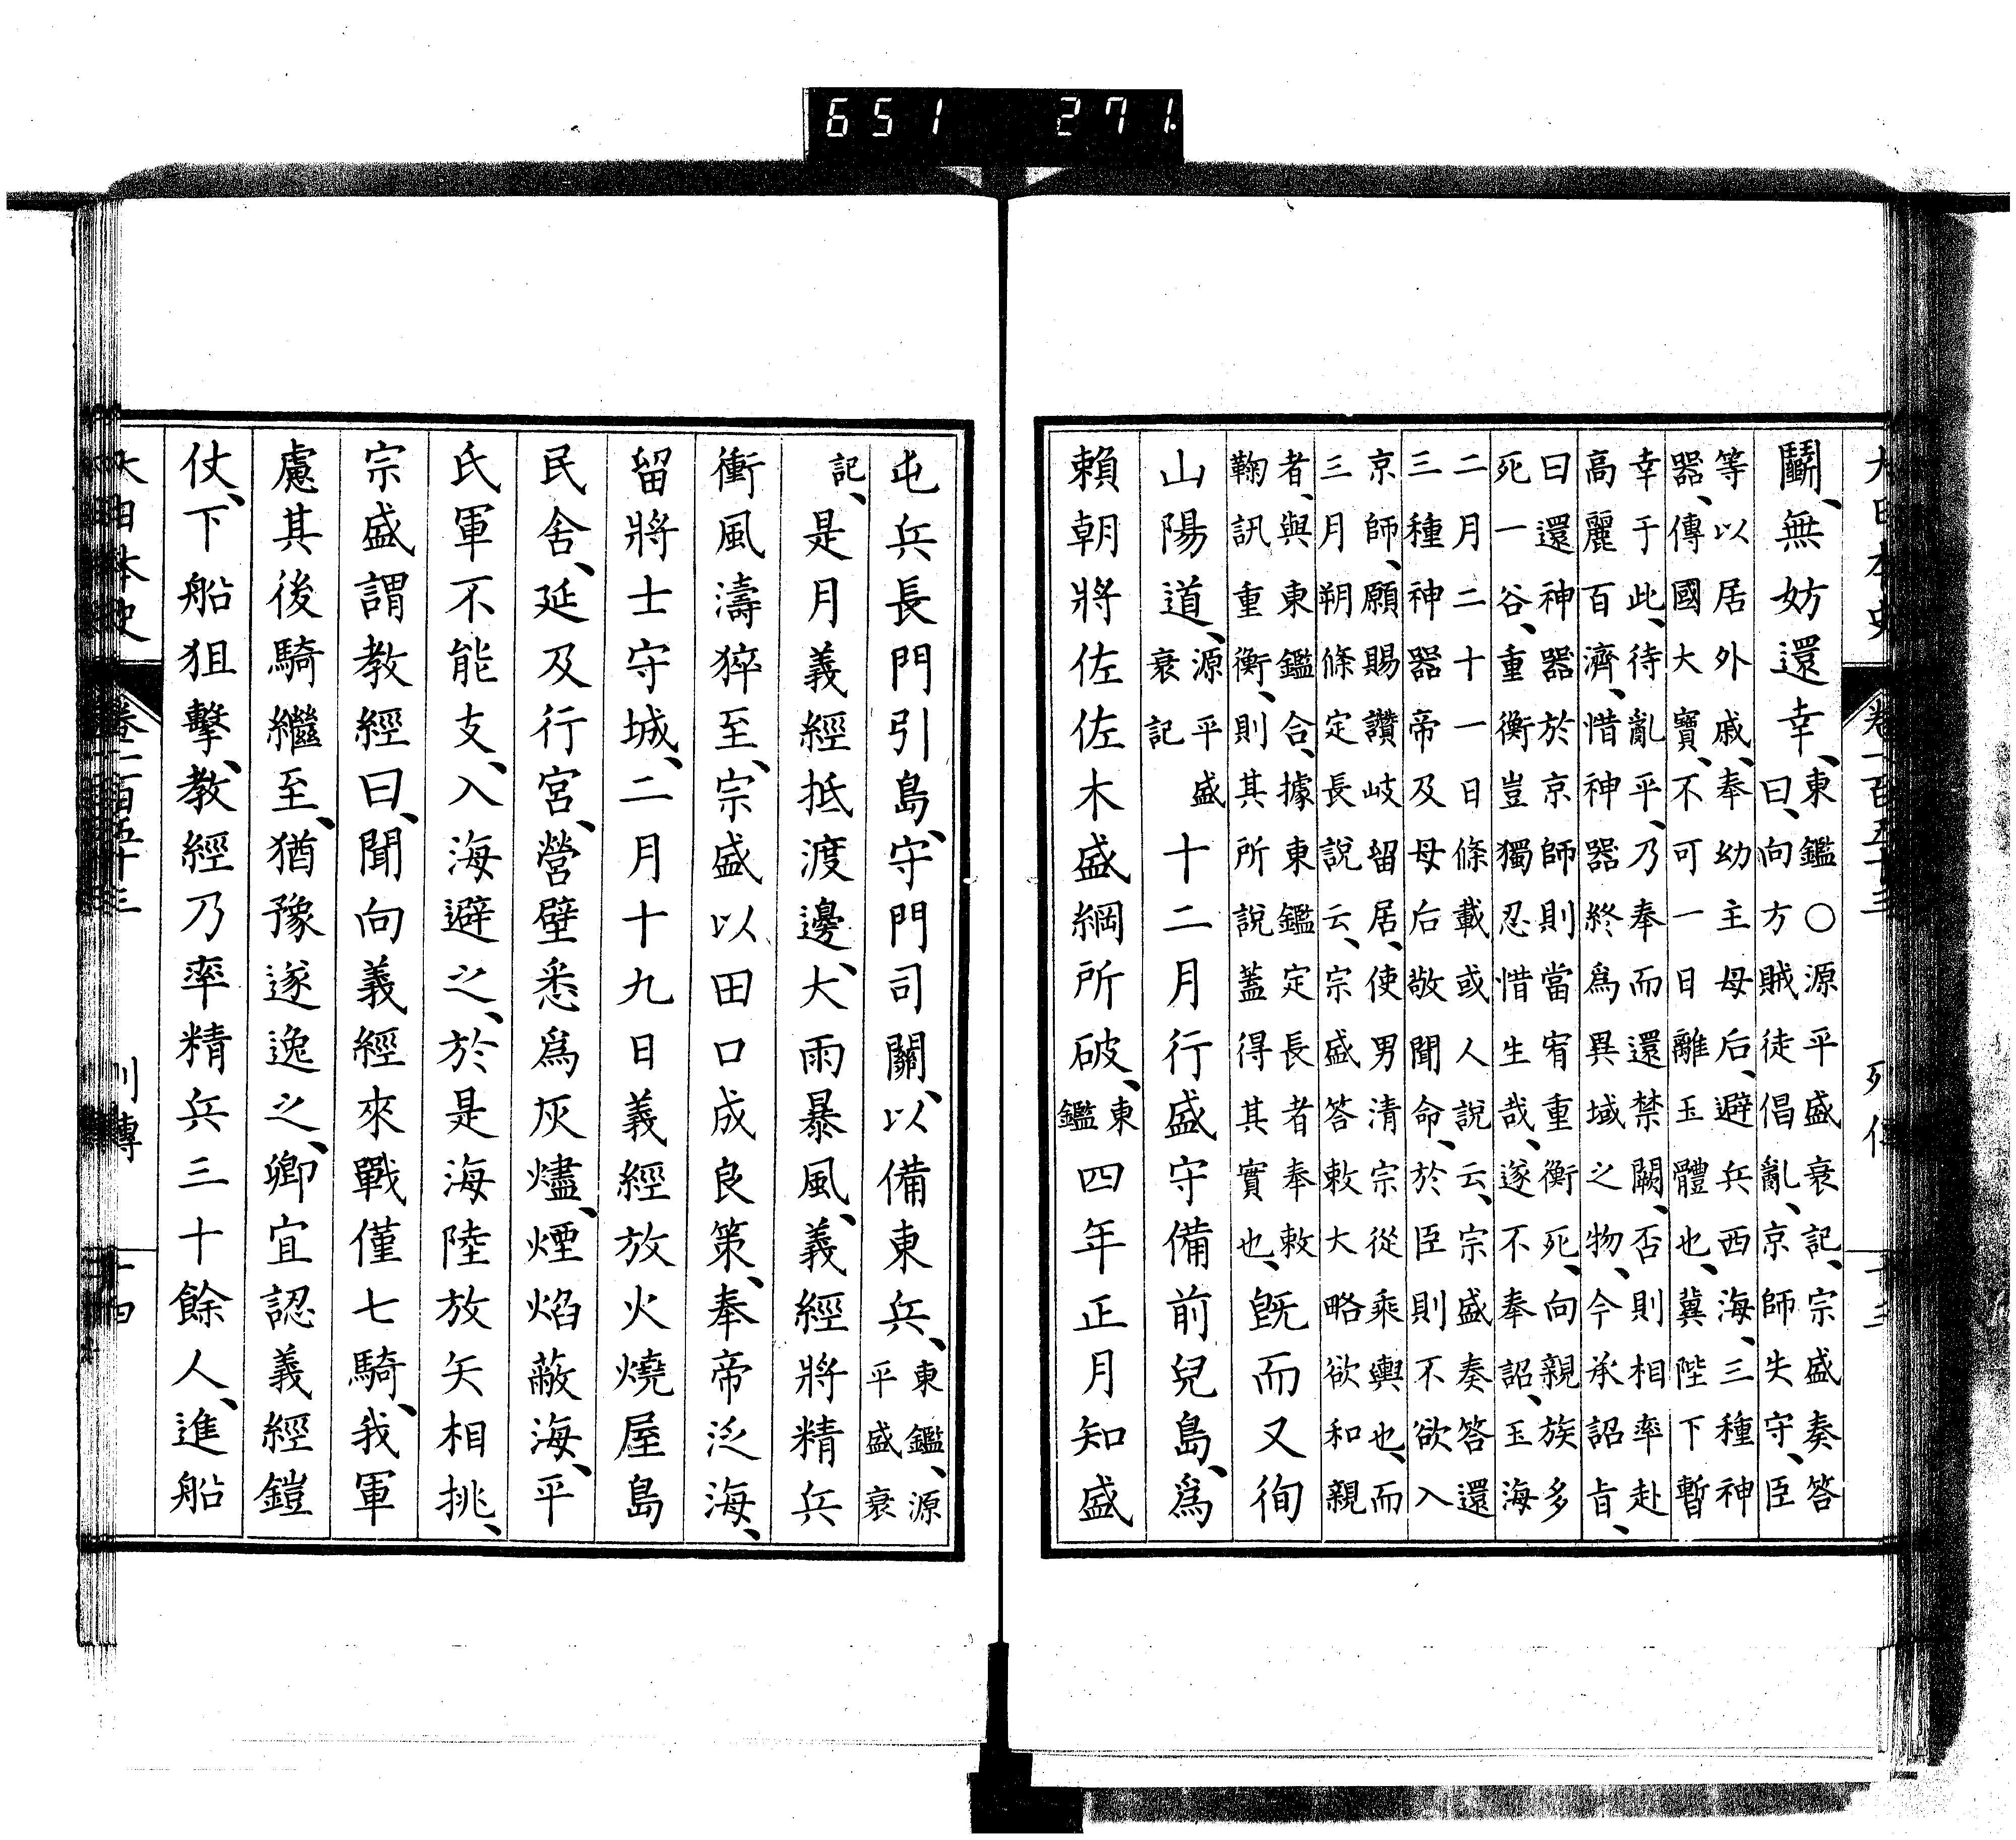 大日本史 卷一百五十三 列傳 十三
鬭、無妨還幸、東鑑○源平盛衰記、宗盛奏答
曰、向方賊徒倡亂、京師失守、臣
等以居外戚、奉幼主母后、避兵西海、三種神
器、傳國大寶、不可一日離玉體也、冀陛下暫
幸于此、待亂平、乃奉而還禁闕、否則相率赴
高麗百濟、惜神器終爲異域之物、今承詔旨、
曰還神器於京師則當宥重衡死、向親族多
死一谷、重衡豈獨忍惜生哉、遂不奉詔、玉海
二月二十一日條載或人說云、宗盛奏答還
三種神器帝及母后敬聞命、於臣則不欲入
京師、願賜讚岐留居、使男清宗從乘輿也、而
三月朔條定長說云、宗盛答敕大略欲和親
者、與東鑑合、據東鑑定長者奉敕
鞠訊重衡、則其所說蓋得其實也、既而又徇
山陽道、源平盛衰記十二月行盛守備前兒島、爲
賴朝將佐佐木盛綱所破、東鑑四年正月知盛
屯兵長門引島、守門司關、以備東兵、東鑑、源平盛衰
記、是月義經抵渡邊、大雨暴風、義經將精兵
衝風濤猝至、宗盛以田口成良策、奉帝泛海、
留將士守城、二月十九日義經放火燒屋島
民舍、延及行宮、營壁悉爲灰燼、煙焰蔽海、平
氏軍不能支、入海避之、於是海陸放矢相挑、
宗盛謂教經曰、聞向義經來戰僅七騎、我軍
慮其後騎繼至、猶豫遂逸之、卿宜認義經鎧
仗、下船狙擊、教經乃率精兵三十餘人、進船
大日本史 卷一百五十三 列傳 十四
651 271